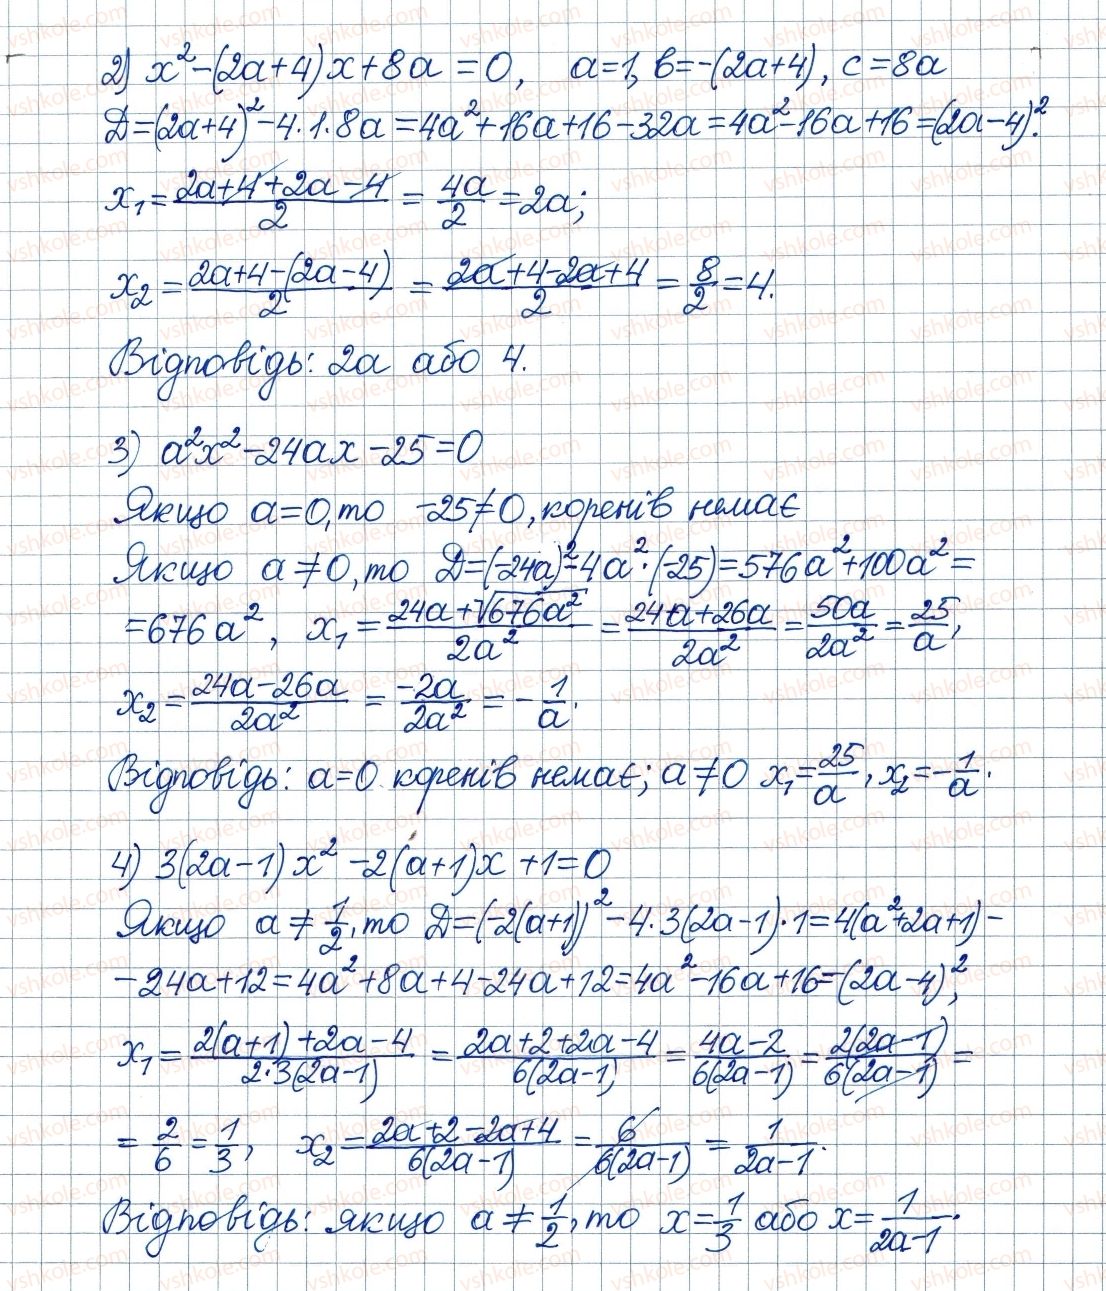 2) x² - (2a+4)x + 8a = 0, a=1, b=-(2a+4), c=8a
D=(2a+4)² - 4·1·8a = 4a²+16a+16-32a = 4a²-16a+16 = (2a-4)².
x₁ = (2a+4+2a-4)/2 = 4a/2 = 2a;
x₂ = (2a+4-(2a-4))/2 = (2a+4-2a+4)/2 = 8/2 = 4.
Відповідь: 2a або 4.
3) a²x² - 24ax - 25 = 0
Якщо a=0, то -25≠0, коренів немає
Якщо a≠0, то D=(-24a)²-4a²·(-25)=576a²+100a²=
=676a², x₁ = (24a+√676a²)/2a² = (24a+26a)/2a² = 50a/2a² = 25/a,
x₂ = (24a-26a)/2a² = -2a/2a² = -1/a.
Відповідь: a=0 коренів немає; a≠0 x₁=25/a, x₂=-1/a.
4) 3(2a-1)x² - 2(a+1)x + 1 = 0
Якщо a≠1/2, то D=(-2(a+1))² - 4·3(2a-1)·1=4(a²+2a+1)-
-24a+12=4a²+8a+4-24a+12=4a²-16a+16=(2a-4)²,
x₁ = (2(a+1)+2a-4)/(2·3(2a-1)) = (2a+2+2a-4)/(6(2a-1)) = (4a-2)/(6(2a-1)) = 2(2a-1)/(6(2a-1)) =
= 2/6 = 1/3, x₂ = (2a+2-2a+4)/(6(2a-1)) = 6/(6(2a-1)) = 1/(2a-1).
Відповідь: якщо a≠1/2, то x=1/3 або x=1/(2a-1).